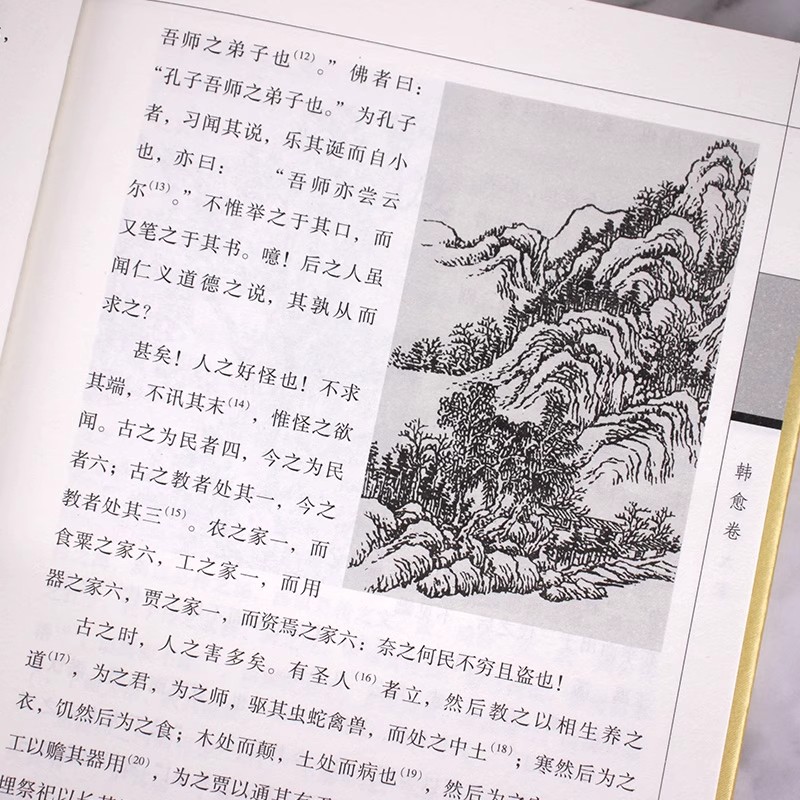 吾师之弟子也(12)。”佛者曰：
“孔子吾师之弟子也。”为孔子
者，习闻其说，乐其诞而自小
也，亦曰：“吾师亦尝云
尔(13)。”不惟举之于其口，而
又笔之于其书。噫！后之人虽
闻仁义道德之说，其孰从而
求之？
甚矣！人之好怪也！不求
其端，不讯其末(14)，惟怪之欲
闻。古之为民者四，今之为民
者六；古之教者处其一，今之
教者处其三(15)。农之家一，而
食粟之家六，工之家一，而用
器之家六，贾之家一，而资焉之家六：奈之何民不穷且盗也！
古之时，人之害多矣。有圣人(16)者立，然后教之以相生养之
道(17)，为之君，为之师，驱其虫蛇禽兽，而处之中土(18)；寒然后为之
衣，饥然后为之食；木处而颠，土处而病也(19)，然后为之
工以赡其器用(20)，为之贾以通其有
埋祭祀以长其
韩愈卷